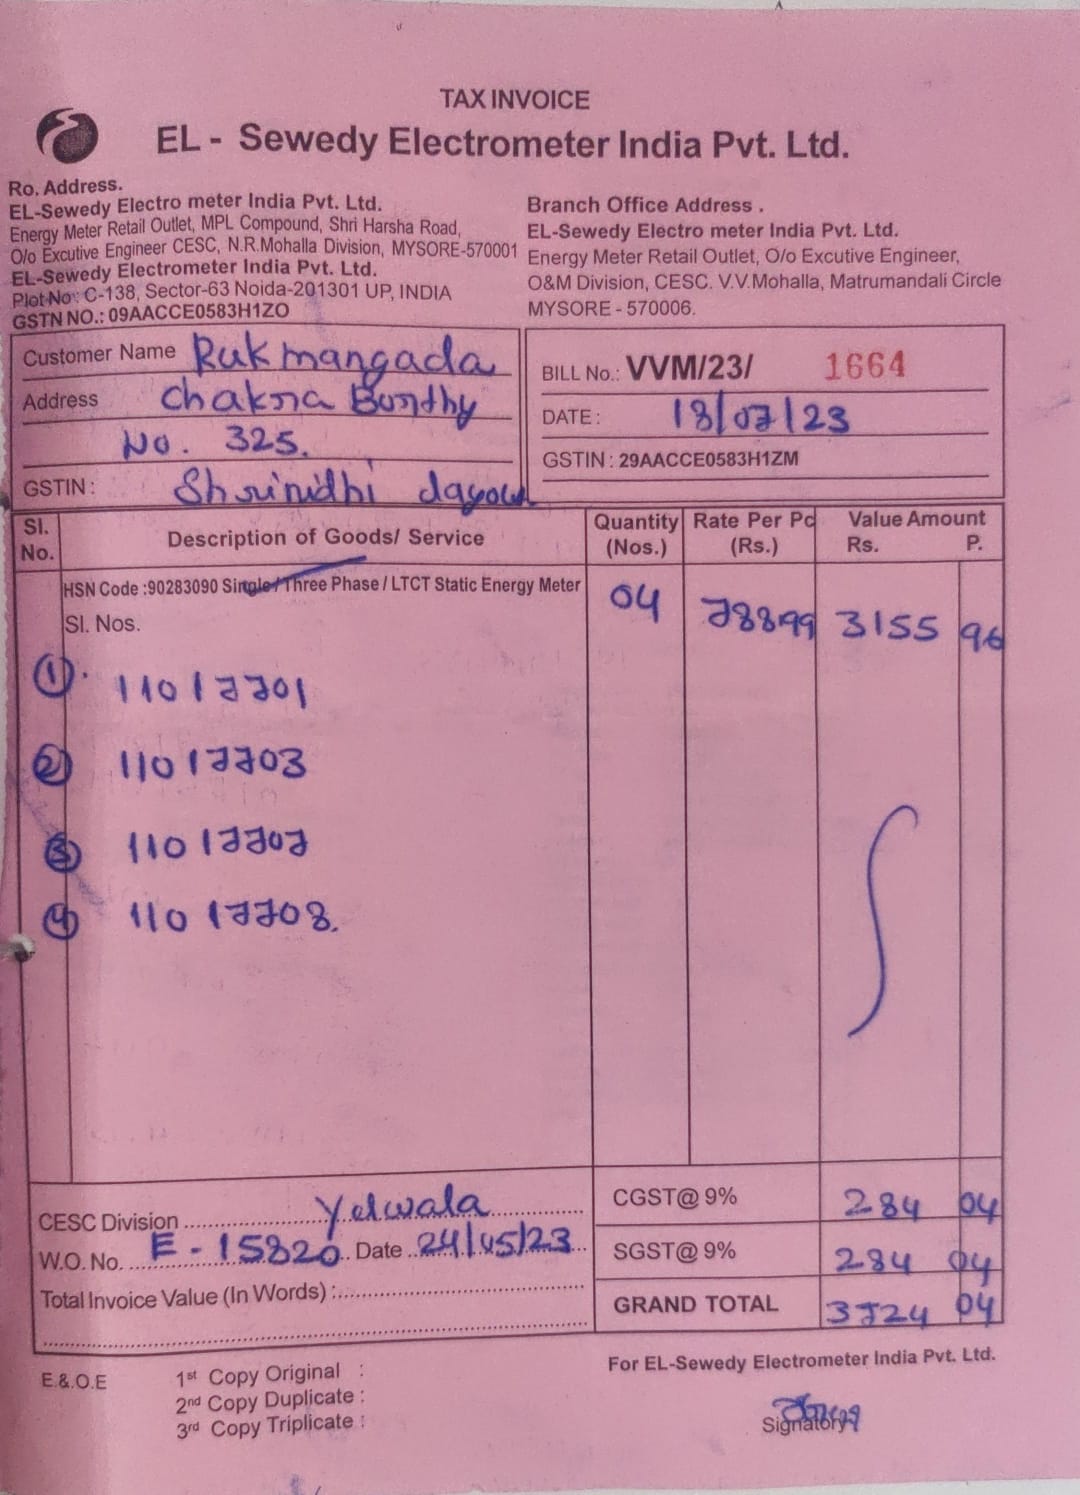 TAX INVOICE
EL - Sewedy Electrometer India Pvt. Ltd.
Ro. Address.
EL-Sewedy Electro meter India Pvt. Ltd.
Energy Meter Retail Outlet, MPL Compound, Shri Harsha Road,
O/o Excutive Engineer CESC, N.R.Mohalla Division, MYSORE-570001
EL-Sewedy Electrometer India Pvt. Ltd.
Plot No: C-138, Sector-63 Noida-201301 UP, INDIA
GSTN NO.: 09AACCE0583H1ZO
Branch Office Address .
EL-Sewedy Electro meter India Pvt. Ltd.
Energy Meter Retail Outlet, O/o Excutive Engineer,
O&M Division, CESC. V.V.Mohalla, Matrumandali Circle
MYSORE - 570006.
Customer Name Rukmangada
Address Chakra
No. 325.
GSTIN : Shrinidhi
BILL No.: VVM/23/ 1664
DATE : 18/07/23
GSTIN : 29AACCE0583H1ZM
Sl. No. Description of Goods/ Service Quantity (Nos.) Rate Per Pc (Rs.) Value Amount Rs. P.
HSN Code :90283090 Single/Three Phase / LTCT Static Energy Meter 04 78899 3155 96
Sl. Nos.
1 11017701
2 11017703
3 11017707
4 11017708.
CESC Division Yelwala
W.O. No. E - 15820 Date 24/05/23
Total Invoice Value (In Words) :
CGST@ 9% 284 04
SGST@ 9% 284 04
GRAND TOTAL 3724 04
E.&.O.E
1st Copy Original :
2nd Copy Duplicate :
3rd Copy Triplicate :
For EL-Sewedy Electrometer India Pvt. Ltd.
Signatory